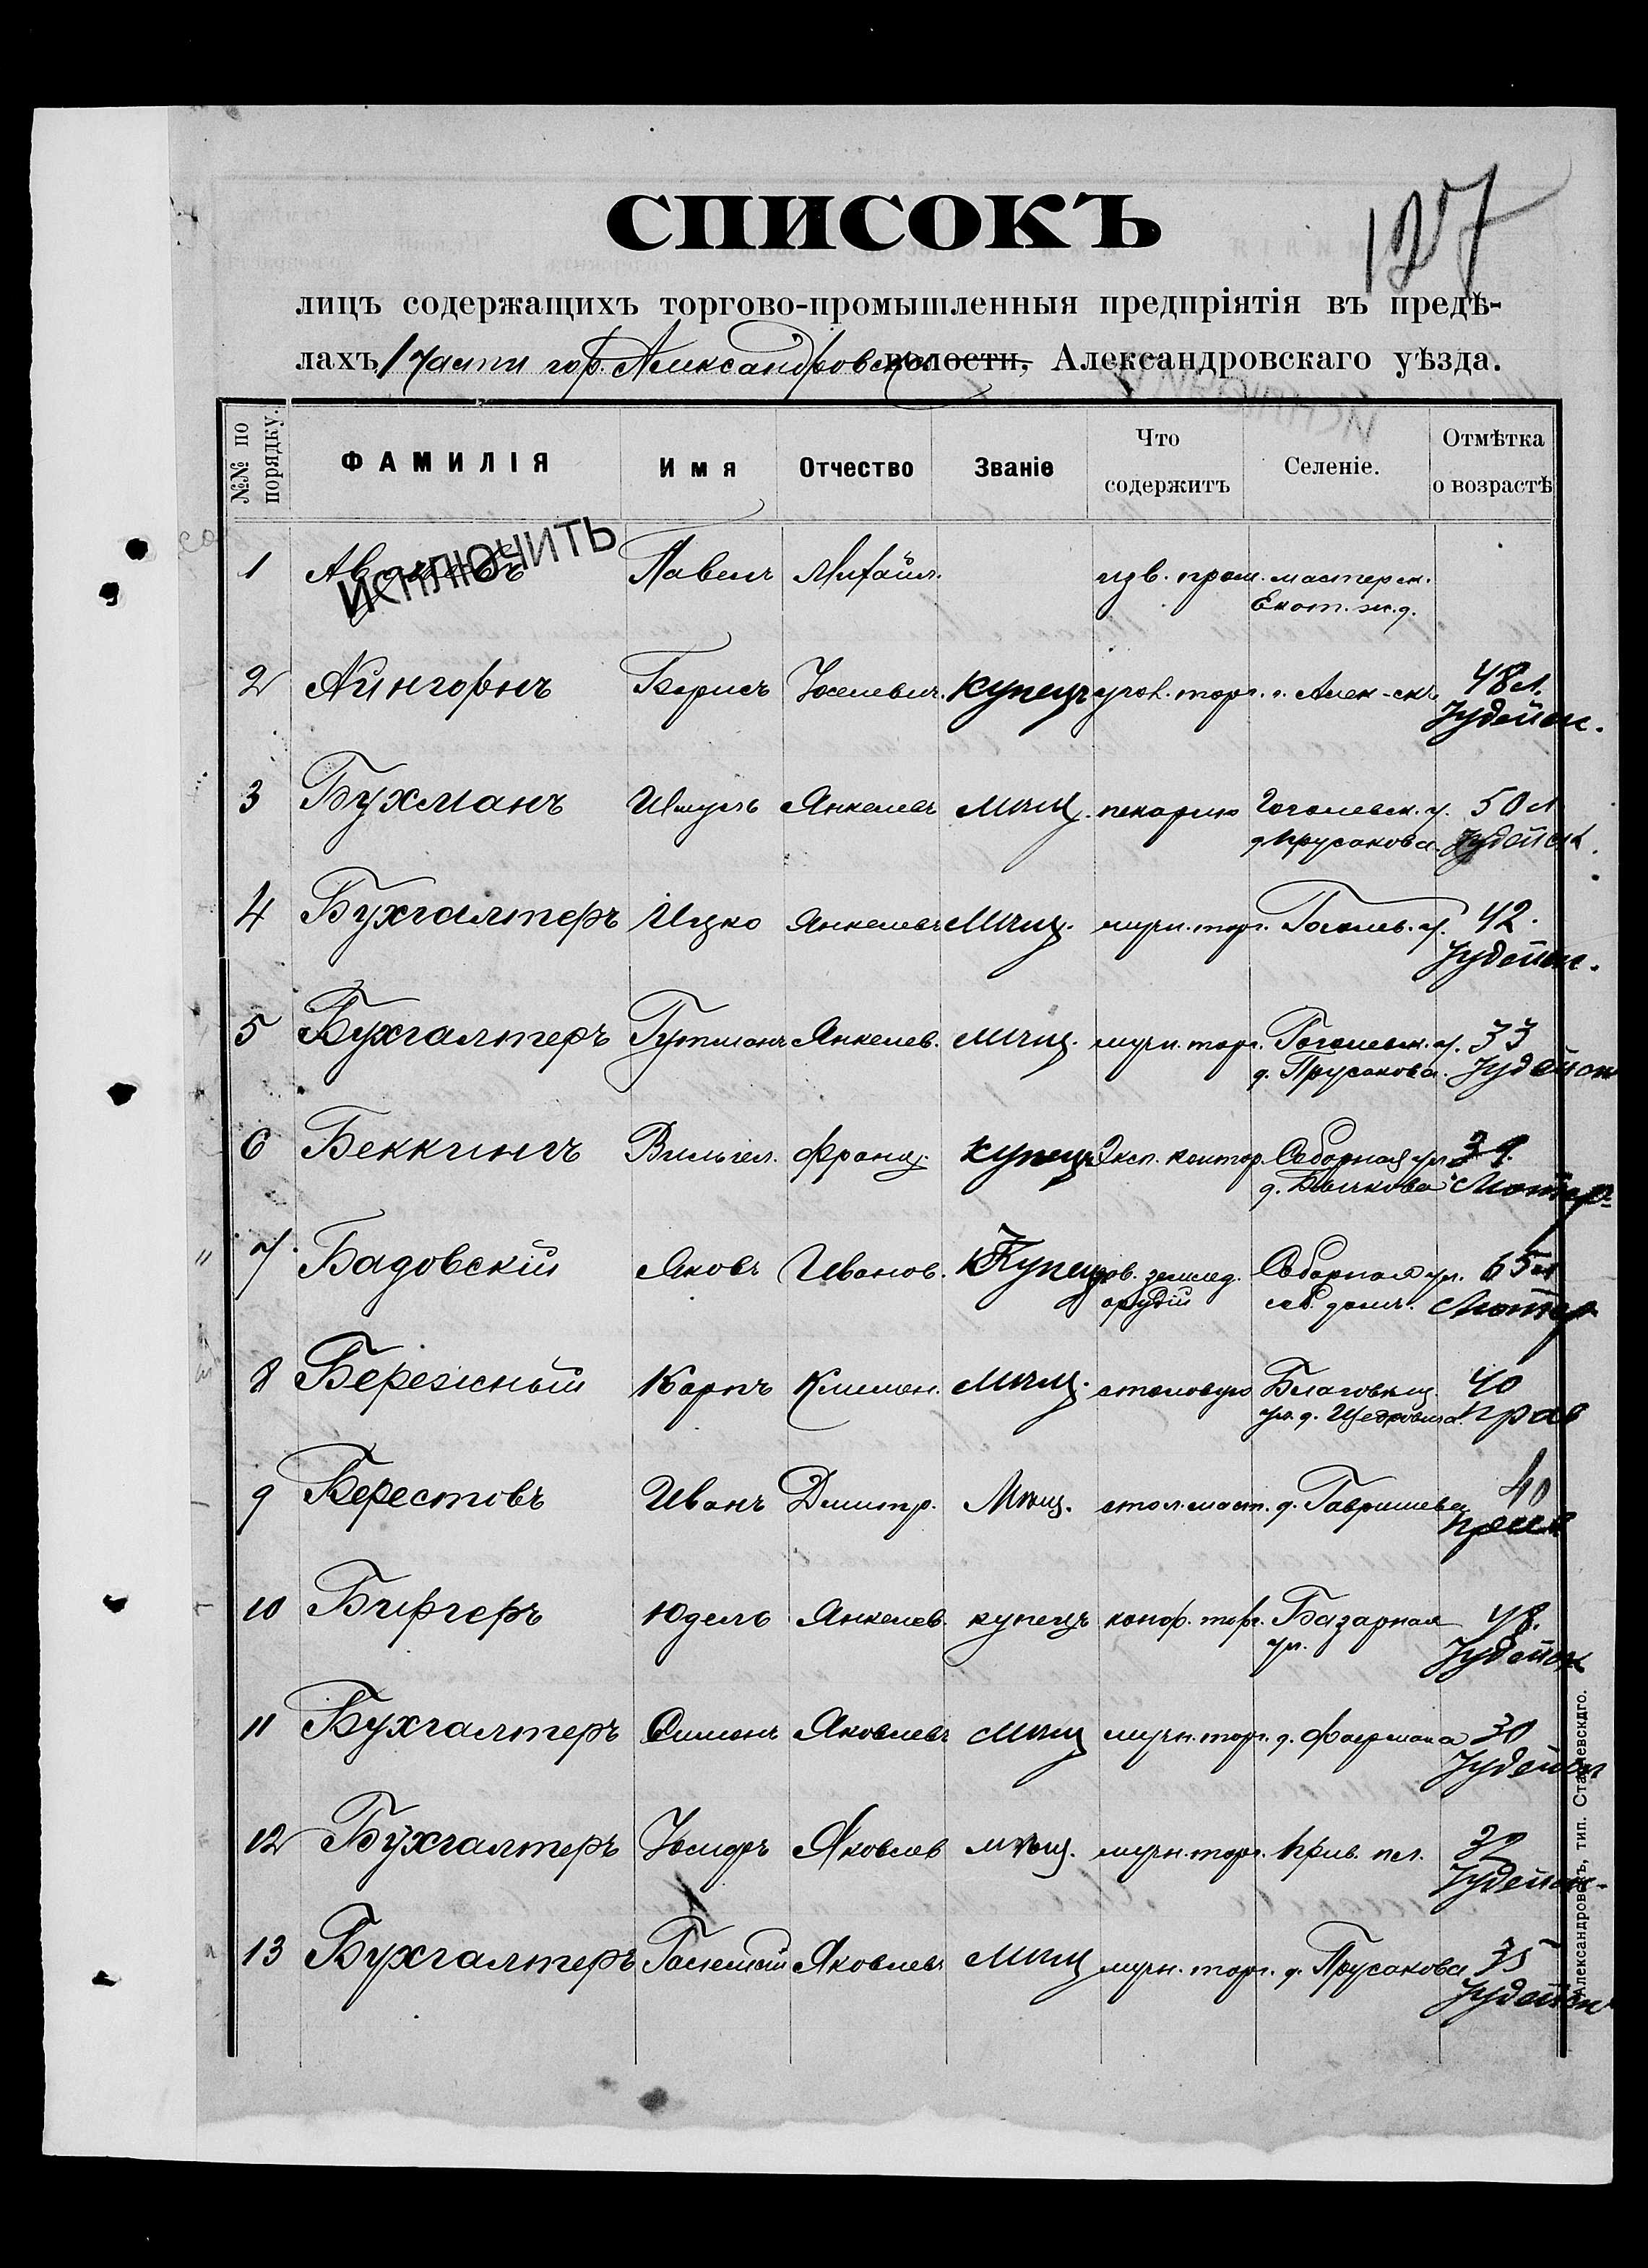 127
СПИСОКЪ
лицъ содержащихъ торгово-промышленныя предпріятія въ предѣ-
лахъ 1 части гор. Александровска волости, Александровскаго уѣзда.
№№ по порядку. ФАМИЛІЯ Имя Отчество Званіе Что содержитъ Селеніе. Отмѣтка о возрастѣ
1 ИСКЛЮЧИТЬ Павелъ Михайл. мастерск.
Екат. ж.д.
2 Айнгорнъ Борисъ купецъ торг. г. Алек-скъ 48 л.
Іудейск.
3 Бухманъ Шмуль Янкелев мѣщ. пекарню Гоголевск. у. 50 л
д Прусакова Іудейск.
4 Бухгалтеръ Ицко Янкелев Мѣщ. мучн. торг. Гоголев. у. 42.
Іудейск.
5 Бухгалтеръ Гутманъ Янкелев. мѣщ. мучн. торг. Гоголевск. у. 33
д. Прусакова. Іудейск
6 Беккингъ Вильгел. Франц. купецъ Эксп. контор. Соборная ул. 39.
д. Бычкова Лютер.
7. Бадовскій Яковъ Иванов. Купец землед. Соборная ул. 65 л
орудій соб. домъ. Лютер
8 Бережный Карпъ Климен. мѣщ. столовую Благовѣщ. 40
ул. д. прав
9 Берестовъ Иванъ Дмитр. Мѣщ. стол. маст. д. Гавришева 40
прав
10 Биргеръ Юдель Янкелев. купецъ конф. торг. Базарная 48.
ул. Іудейск
11 Бухгалтеръ Симонъ Яковлев мѣщ мучн. торг. д. Фаермана 30
Іудейск
12 Бухгалтеръ Яковлев мѣщ. мучн. торг. Прив. пл. 32
Іудейск.
13 Бухгалтеръ Яковлев мѣщ мучн. торг. д. Прусакова 35
Іудейск
Александровскъ, тип. Сталевскаго.